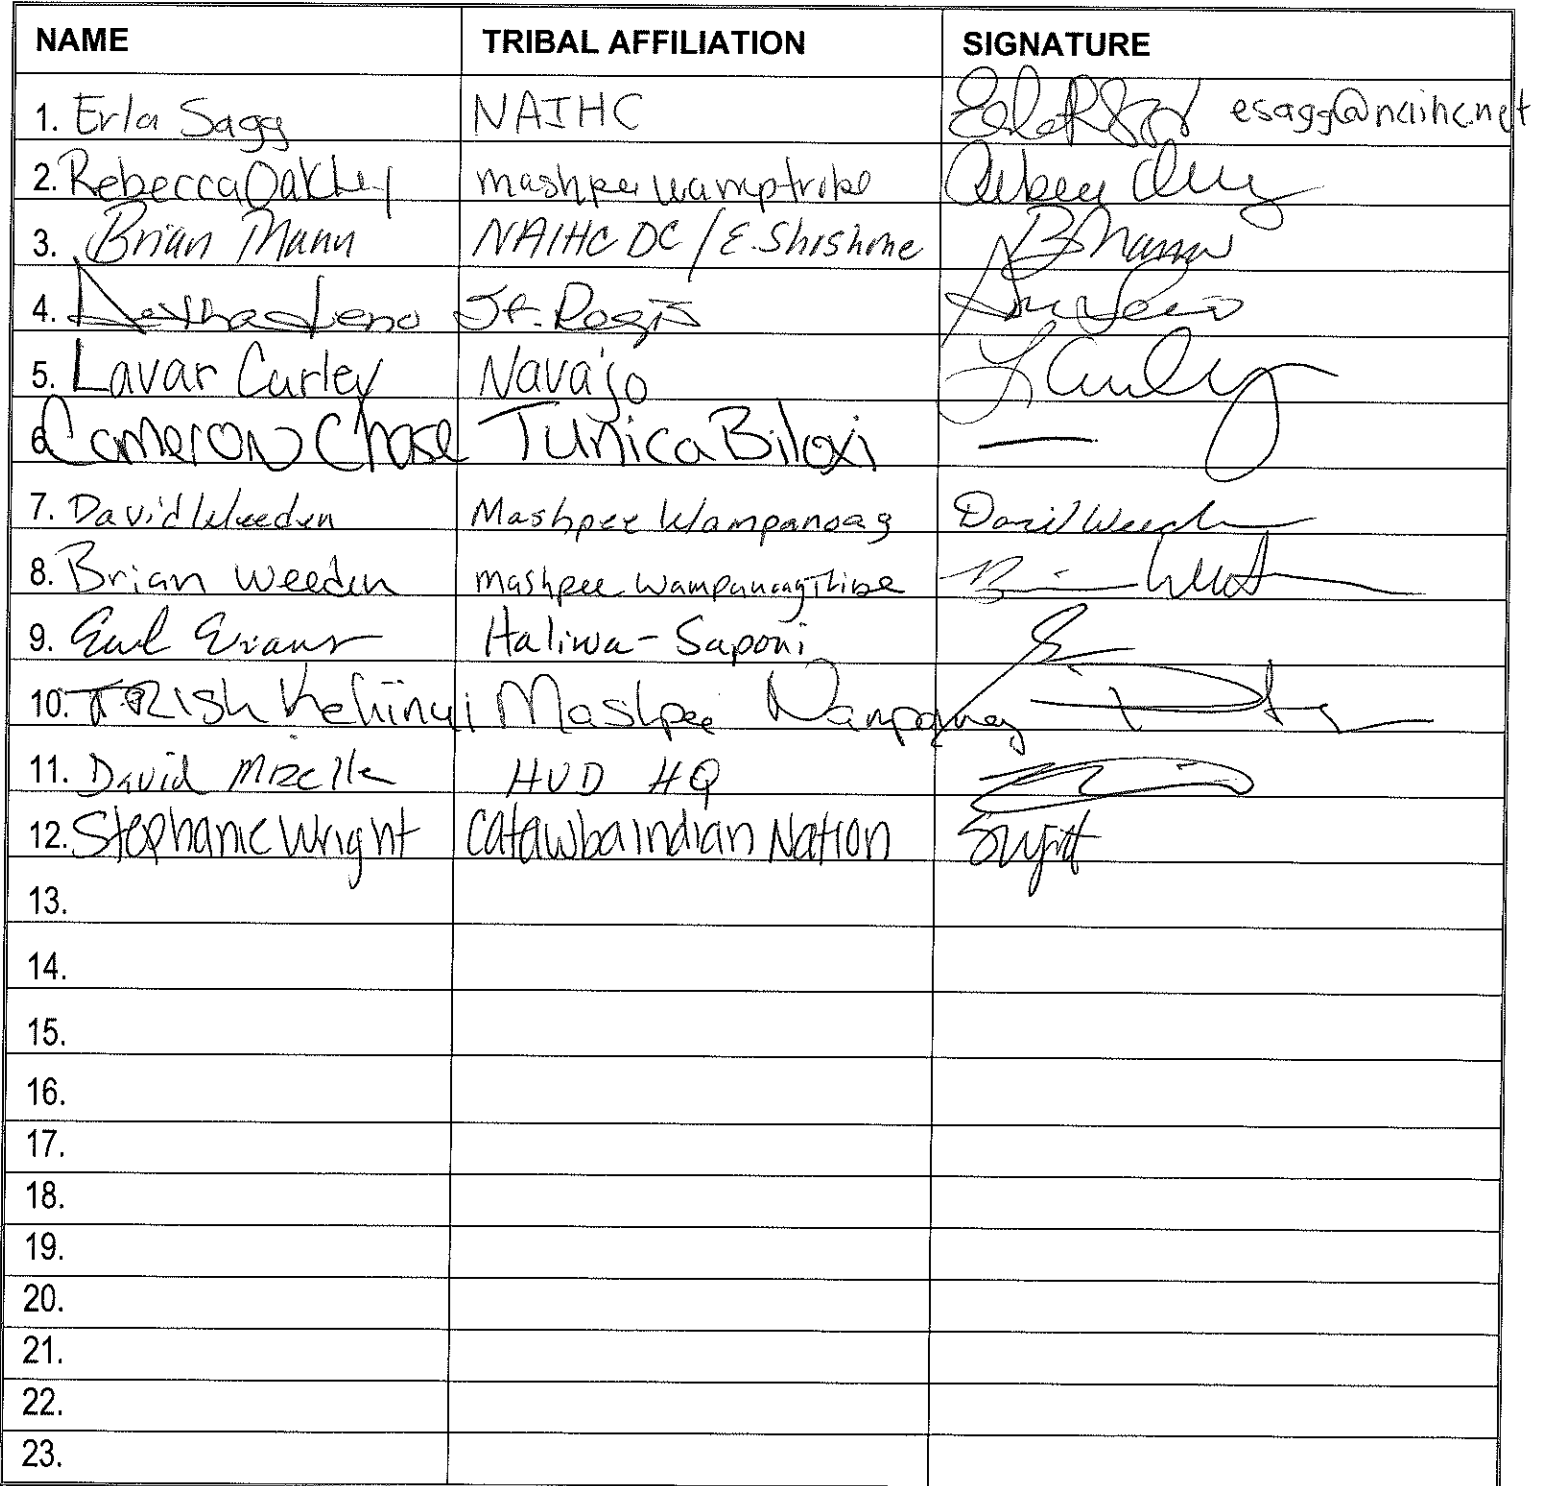 NAME TRIBAL AFFILIATION SIGNATURE
1. Erla Sagg NAIHC esagg@naihc.net
2. Rebecca Oakley mashpee wamp tribe
3. Brian Mann NAIHC DC / E. Shoshone B Mann
4. Leno St. Regis
5. Lavar Curley Navajo L Curley
6. Cameron Chase Tunica Biloxi —
7. David Weeden Mashpee Wampanoag David Weeden
8. Brian Weeden mashpee Wampanoag Tribe
9. Earl Evans Haliwa-Saponi
10. TRISh Kehinui Mashpee Wampanoag
11. David Mizelle HUD HQ
12. Stephanie Wright Catawba Indian Nation
13.
14.
15.
16.
17.
18.
19.
20.
21.
22.
23.